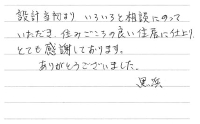 設計当初より いろいろと相談にのって
いただき、住みごこちの良い住居に仕上り、
とても感謝しております。
ありがとうございました。
黒浜